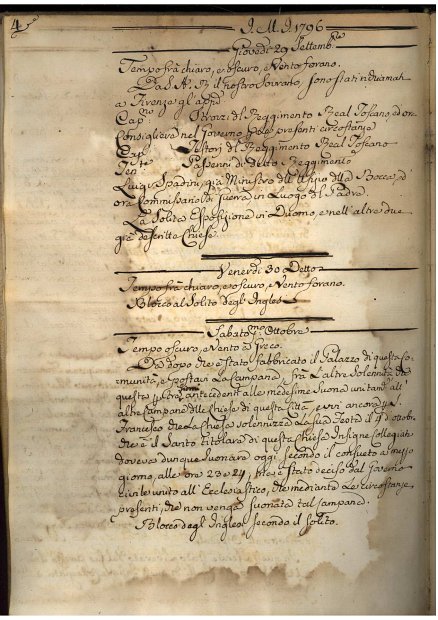 4
I. M. I. 1796
Giovedì 29 Settemb.re
Tempo frà chiaro, e oscuro, e Vento forano.
Da S. A. R. il nostro Sovrano, sono stati richiamati
a Firenze gl'
Cap.no Strozzi del Reggimento Real Toscano, ed ora
Consigliere nel Governo presenti circostanze
Cap. del Reggimento Real Toscano
Ten.te di detto Reggimento
Luigi Spadini, già Ministro dell' Ufizio della Bocca, ed
ora Commissario di Guerra in Luogo del Padre.
La Solita Esposizione in Duomo, e nell' altre due
già descritte Chiese.
Venerdì 30 Detto
Tempo frà chiaro, e oscuro, e Vento forano.
Blocco al Solito degl' Inglesi
Sabato p.mo Ottobre
Tempo oscuro, e Vento a Greco.
Da dopo che è stato fabbricato il Palazzo di questa Co-
munità, e postavi La Campana, frà L'altre Solennità che
questa p. antecedenti alle medesime Suona unitam.te all'
altre Campane delle Chiese di questa Città, e vi è ancora p. S.
Francesco che La Chiesa Solennizza La Sua Festa il dì 4 Ottob.
che è il Santo titolare di questa Chiesa Insigne Collegiata
doveva dunque Suonare oggi Secondo il consueto a mezzo
giorno, alle ore 23 e 24, mà è stato deciso dal Governo
Civile unito all' Ecclesiastico, che mediante Le circostanze
presenti, che non venga Suonata tal Campana.
Blocco degl' Inglesi Secondo il Solito.